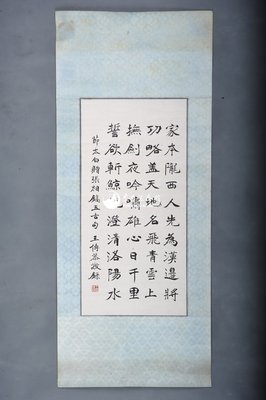 家本隴西人先為漢邊將
功略蓋天地名飛青雲上
撫劍夜吟嘯雄心日千里
誓欲斬鯨鯢澄清洛陽水
節太白贈張相鎬五古句 王